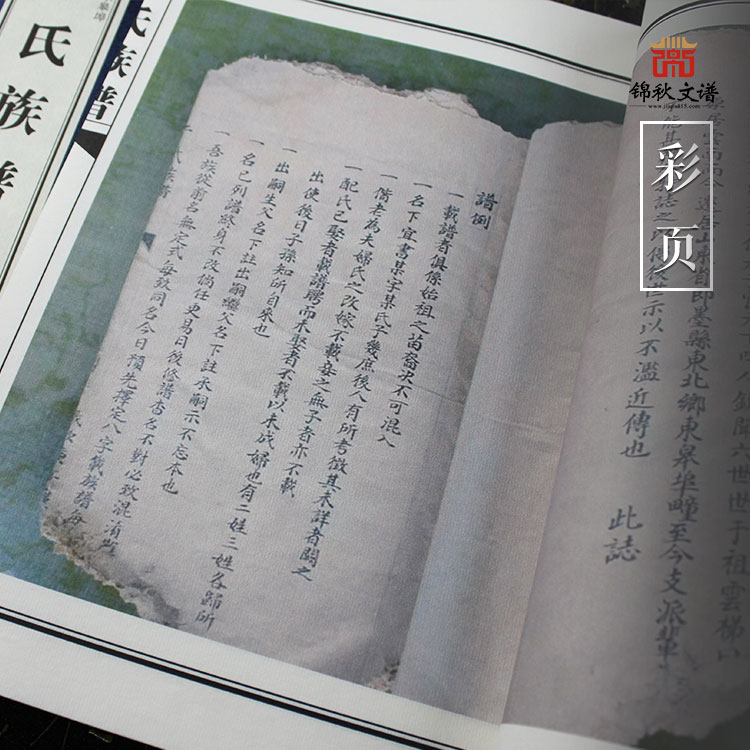 锦秋文谱
www.jinqiu815.com
彩页
氏族譜
氏族譜
譜例
一載譜者俱係始祖之苗裔決不可混入
一名下宜書某字某氏子幾庶後人有所考徵其未詳者闕之
一偕老為夫婦氏之改嫁不載妾之無子者亦不載
一配氏已娶者載譜聘而未娶者不載以未成婦也有二姓三姓各歸所
出使後日子孫知所自來也
一出嗣生父名下註出嗣繼父名下註承嗣示不忘本也
一名已列譜終身不改倘任更易日後修譜查名不對必致混淆
一吾族從前名無定式毋致同名今日預先擇定八字載族譜每
誌之以傳後世示以不濫近傳也
此誌
山東省即墨縣東北鄉東皋埠疃至今支派輩
六世世于祖雲梯